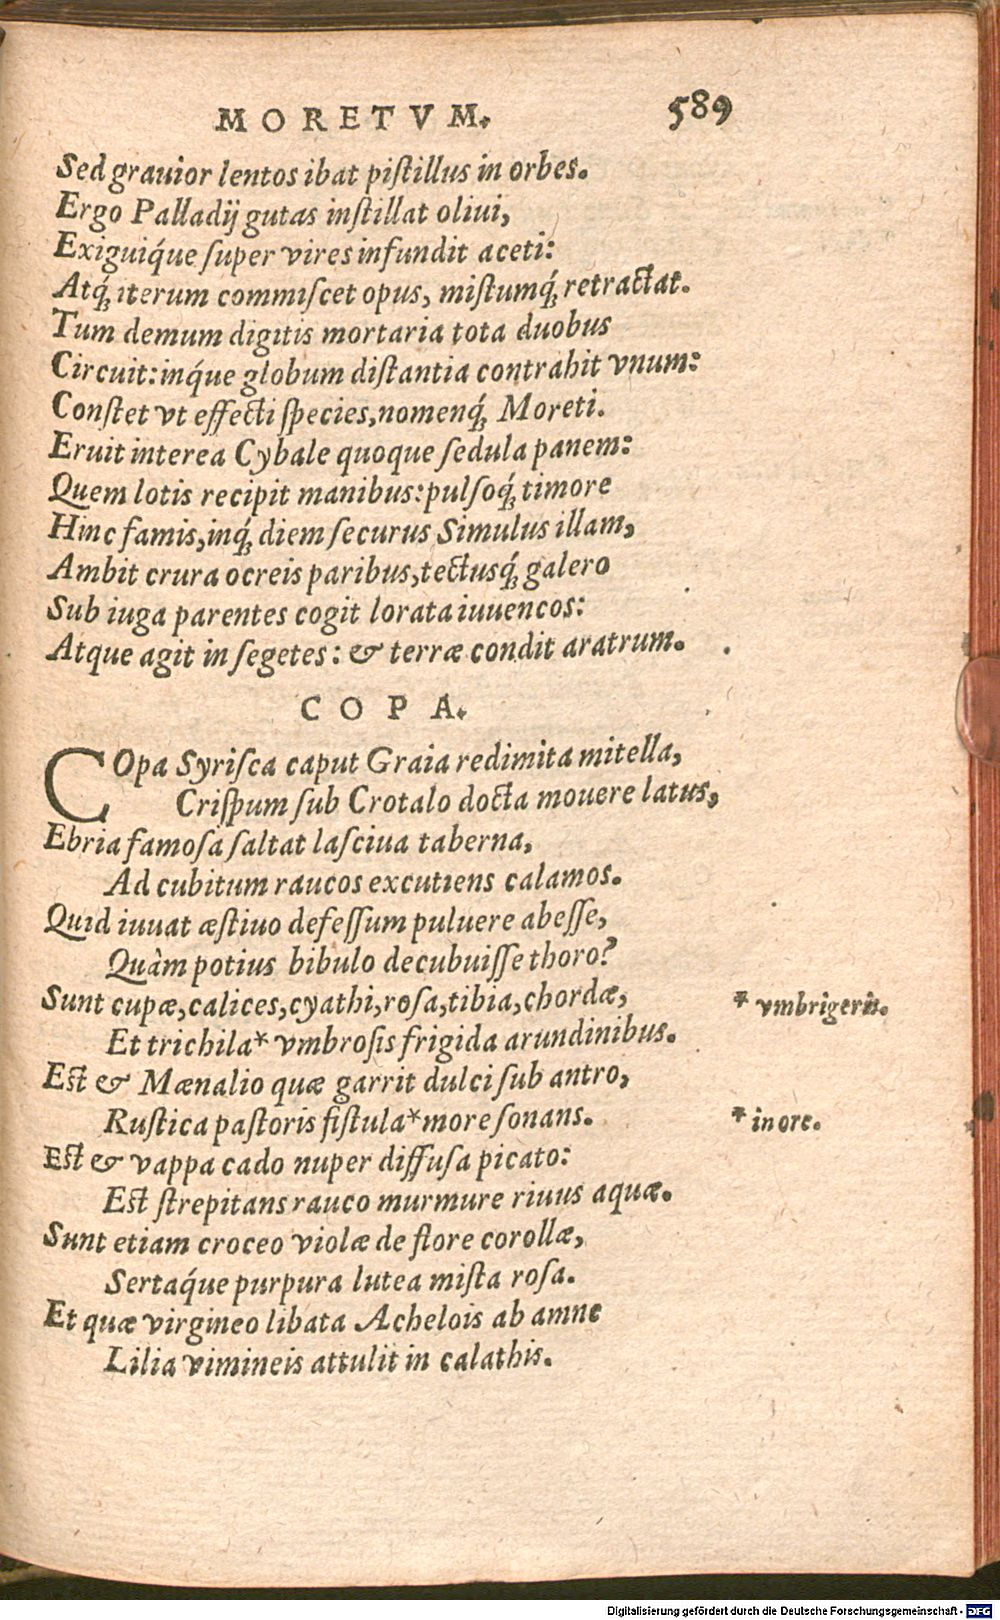 MORETVM. 589
Sed grauior lentos ibat piſtillus in orbes.
Ergo Palladij gutas inſtillat oliui,
Exiguiq́ue ſuper vires infundit aceti:
Atq́; iterum commiſcet opus, miſtumq́; retractat.
Tum demum digitis mortaria tota duobus
Circuit: inq́ue globum diſtantia contrahit vnum:
Conſtet vt effecti ſpecies, nomenq́; Moreti.
Eruit interea Cybale quoque ſedula panem:
Quem lotis recipit manibus: pulſoq́; timore
Hinc famis, inq́; diem ſecurus Simulus illam,
Ambit crura ocreis paribus, tectusq́; galero
Sub iuga parentes cogit lorata iuuencos:
Atque agit in ſegetes: & terræ condit aratrum.
COPA.
COpa Syriſca caput Graia redimita mitella,
Criſpum ſub Crotalo docta mouere latus,
Ebria famoſa ſaltat laſciua taberna,
Ad cubitum raucos excutiens calamos.
Quid iuuat æſtiuo defeſſum puluere abeſſe,
Quàm potius bibulo decubuiſſe thoro?
Sunt cupæ, calices, cyathi, roſa, tibia, chordæ,
* vmbrigeris.
Et trichila* vmbroſis frigida arundinibus.
Est & Mænalio quæ garrit dulci ſub antro,
Ruſtica paſtoris fiſtula* more ſonans.
* in ore.
Est & vappa cado nuper diffuſa picato:
Est ſtrepitans rauco murmure riuus aquæ.
Sunt etiam croceo violæ de flore corollæ,
Sertaq́ue purpura lutea miſta roſa.
Et quæ virgineo libata Achelois ab amne
Lilia vimineis attulit in calathis.
Digitalisierung gefördert durch die Deutsche Forschungsgemeinschaft - DFG